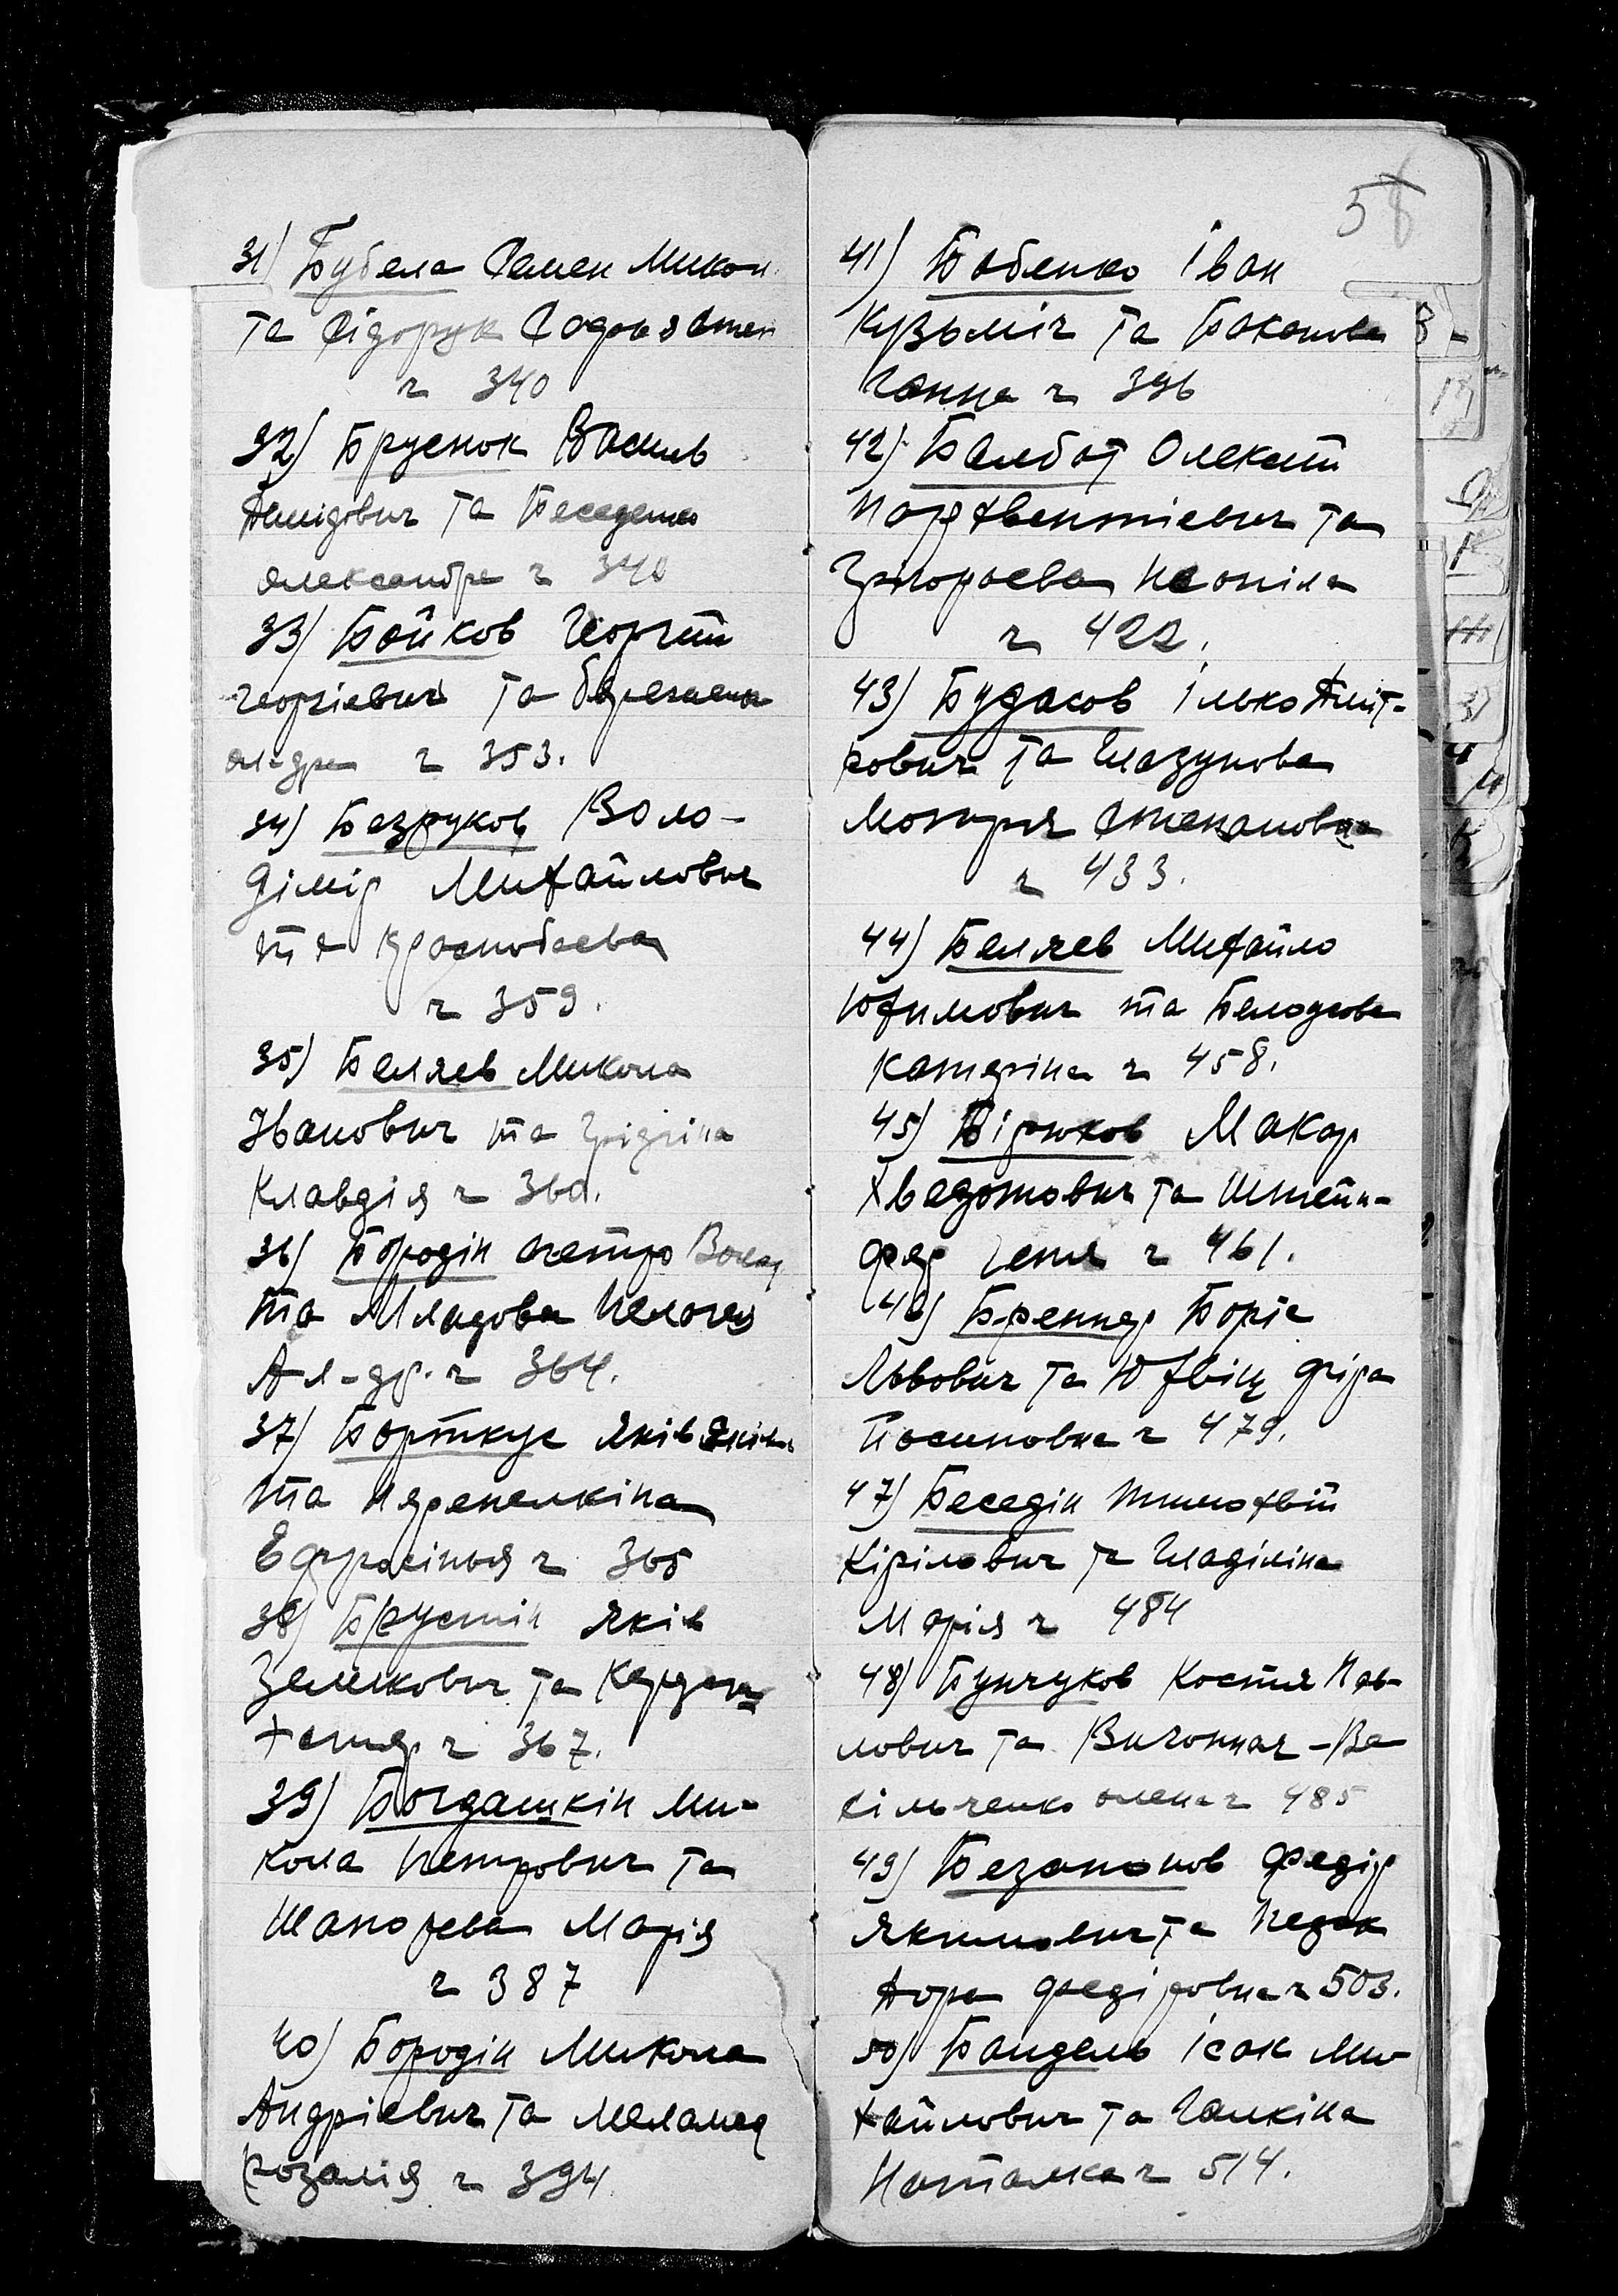 31) Бубела Семен Микол.
та Сідорук Содоня
ч 340
32) Бруснюк Василь
Демідович та Беседена
Александра ч 340
33) Бойков Георгій
Георгіевич та
ал-дра ч 353.
34) Безруков Воло-
дімір Михайлович
та Краснобаева
ч 359.
35) Беляев Микола
Іванович та
Клавдія ч 360.
36) Бородін Петро Волод
та Младова Пелагея
Ал-др. ч 364.
37) Борткус Яків
та Перепелкіна
Ефросінья ч 365
38) Брустін Яків
Зеликович та
ч 367.
39) Богдашкін Ми-
кола Петрович та
Шапорева Марія
ч 387
40) Бородін Микола
Андріевич та Меламед
Розалія ч 394
58
41) Бабенко Іван
Кузьміч та Баканова
Ганна ч 396
42) Балбат Олексій
Парфвентіевич та
Григораева Неоніла
ч 422.
43) Будасов Ілько Дміт-
рович та Глазунова
Мотря Степановна
ч 433.
44) Беляев Михайло
Юхимович та
Катеріна ч 458.
45) Бірюков Макар
Хведотович та Штейн-
фер Геня ч 461.
46) Бреннер Боріс
Львович та Юхвіц Фіра
Йосиповна ч 479.
47) Беседін Тимохвій
Кірілович та Гладіліна
Марія ч 484
48) Бунчуков Костя Пав-
лович та -Ва
сільченко Олена ч 485
49) Безапонов Федір
Якимович та Педак
Дора Федіровна ч 503.
50) Бандель Ісак Ми-
хайлович та Галкіна
Наталка ч 514.